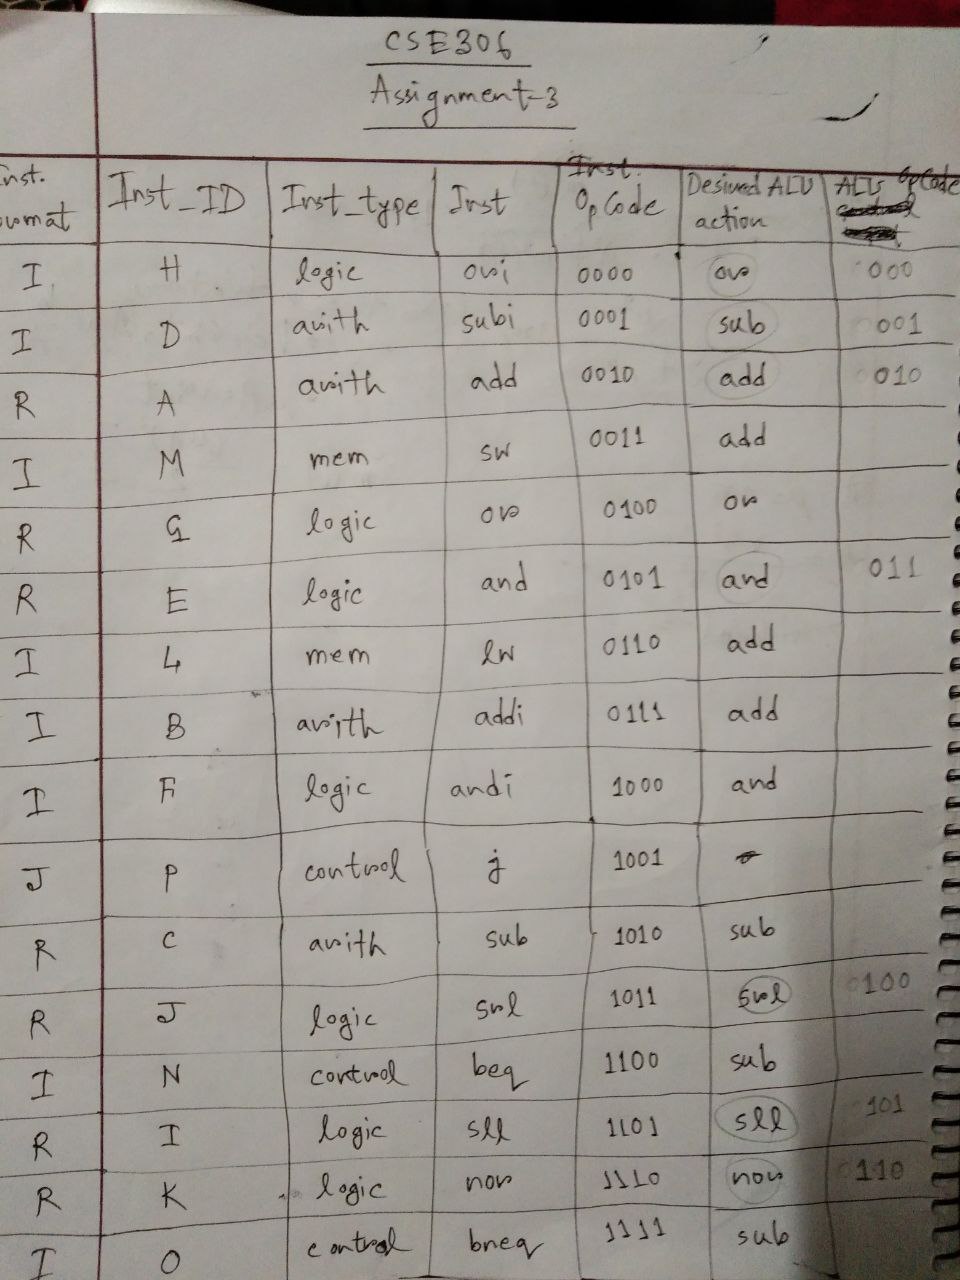 CSE306
Assignment-3
Inst. format | Inst_ID | Inst_type | Inst | Inst. OpCode | Desired ALU action | ALU OpCode
I | H | logic | ori | 0000 | or | 000
I | D | arith | subi | 0001 | sub | 001
R | A | arith | add | 0010 | add | 010
I | M | mem | sw | 0011 | add
R | G | logic | or | 0100 | or
R | E | logic | and | 0101 | and | 011
I | L | mem | lw | 0110 | add
I | B | arith | addi | 0111 | add
I | F | logic | andi | 1000 | and
J | P | control | j | 1001
R | C | arith | sub | 1010 | sub
R | J | logic | srl | 1011 | srl | 100
I | N | control | beq | 1100 | sub
R | I | logic | sll | 1101 | sll | 101
R | K | logic | nor | 1110 | nor | 110
I | O | control | bneq | 1111 | sub